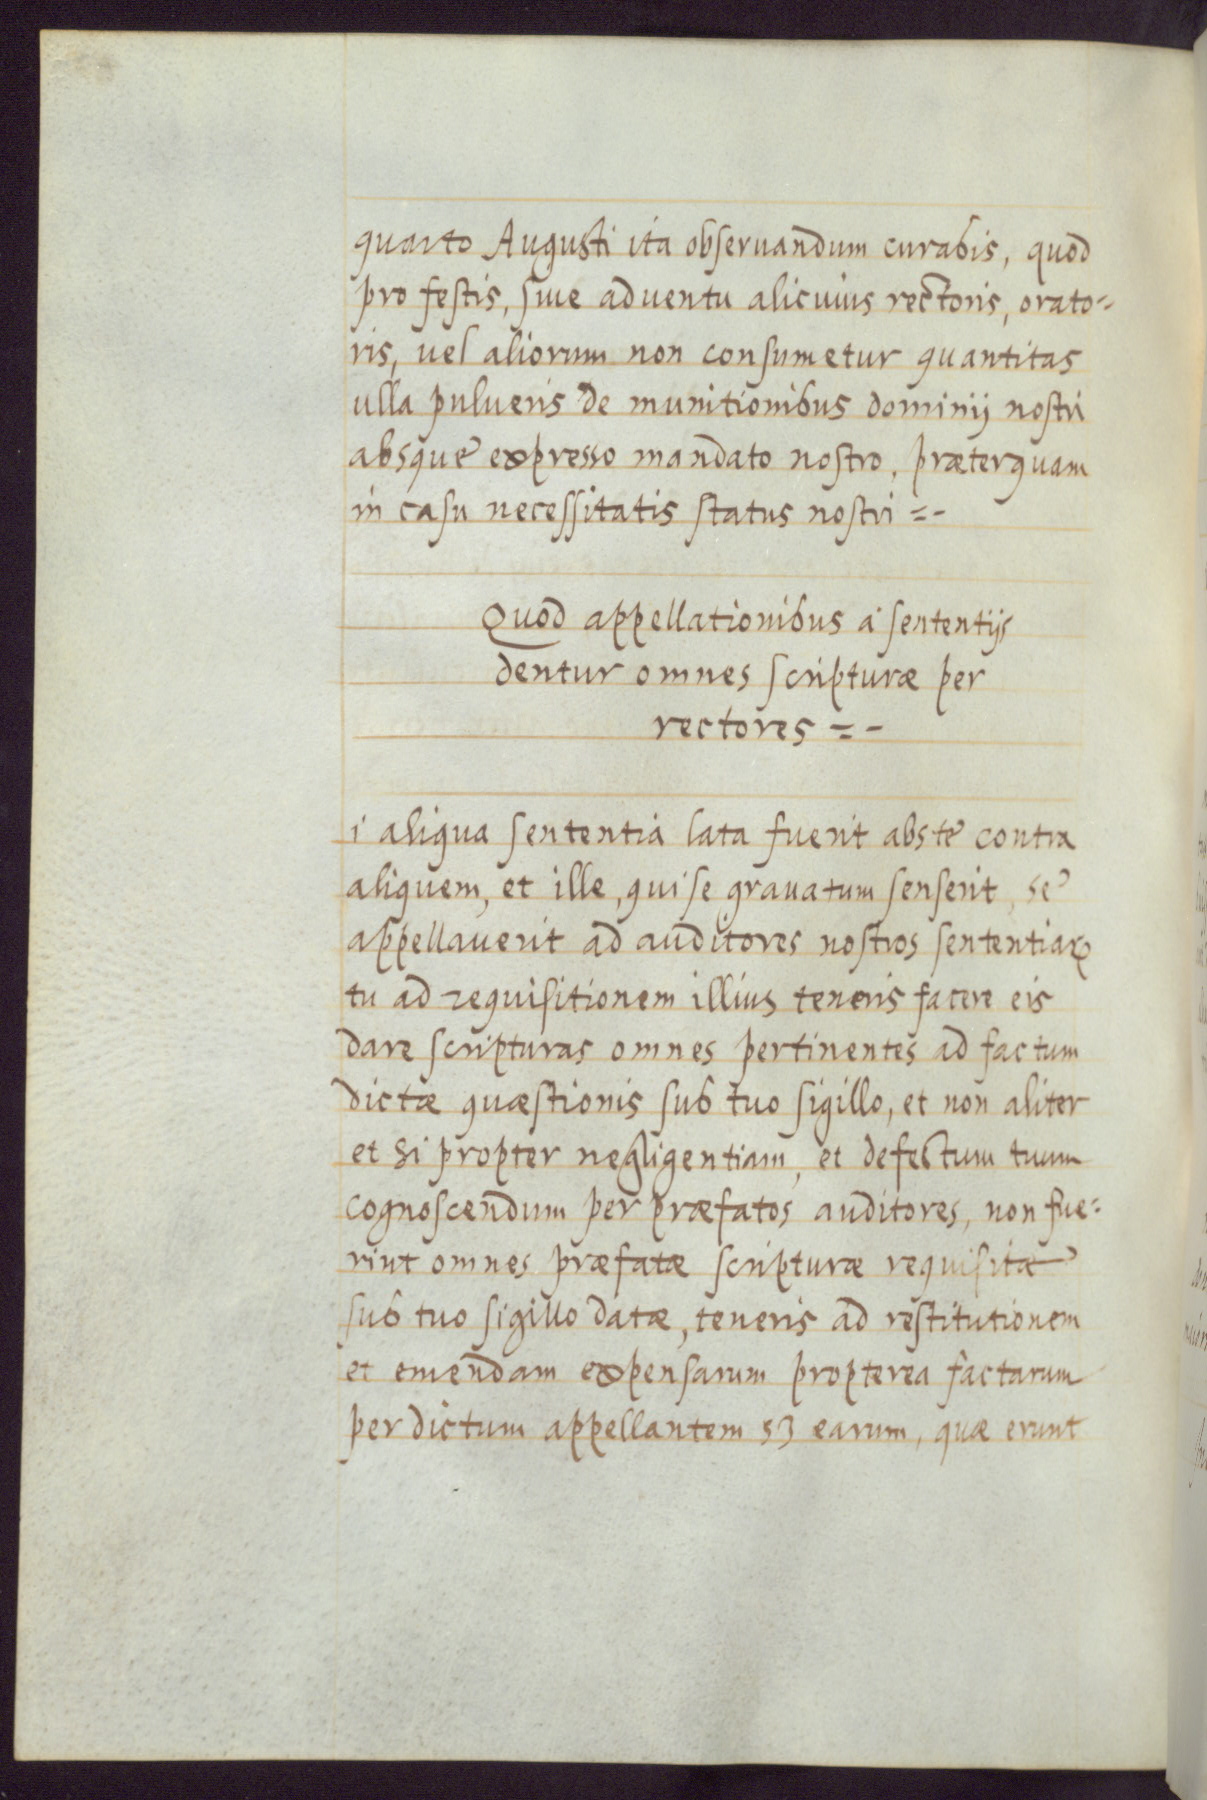 quarto Augusti ita obseruandum curabis, quod
pro festis, siue aduentu alicuius rectoris, orato=
ris, uel aliorum non consumetur quantitas
ulla pulueris de munitionibus dominij nostri
absque expresso mandato nostro, præterquam
in casu necessitatis status nostri =-
Quod appellationibus a sententijs
dentur omnes scripturæ per
rectores =-
i aliqua sententia lata fuerit abste contra
aliquem, et ille, qui se grauatum senserit, se
appellauerit ad auditores nostros sententiaꝝ
tu ad requisitionem illius teneris facere eis
dare scripturas omnes pertinentes ad factum
dictæ quæstionis sub tuo sigillo, et non aliter
et si propter negligentiam, et defectum tuum
cognoscendum per præfatos auditores, non fue=
rint omnes præfatæ scripturæ requisitæ
sub tuo sigillo datæ, teneris ad restitutionem
et emendam expensarum propterea factarum
per dictum appellantem sꝫ earum, quæ erunt